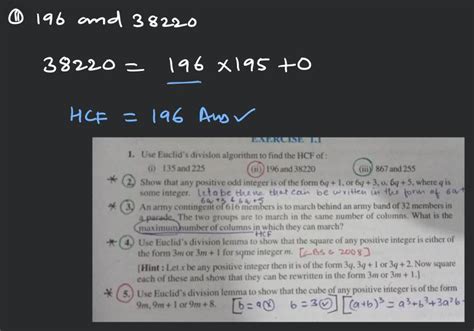 (ii) 196 and 38220
38220 = 196 × 195 + 0
HCF = 196 Ans ✓
EXERCISE 1.1
1. Use Euclid's division algorithm to find the HCF of :
(i) 135 and 225 (ii) 196 and 38220 (iii) 867 and 255
* 2. Show that any positive odd integer is of the form 6q + 1, or 6q + 3, or 6q + 5, where q is
some integer. that can be written in the form of 6q+
6q+3 6q+5
* 3. An army contingent of 616 members is to march behind an army band of 32 members in
a parade. The two groups are to march in the same number of columns. What is the
maximum number of columns in which they can march?
HCF
* 4. Use Euclid's division lemma to show that the square of any positive integer is either of
the form 3m or 3m + 1 for some integer m. [CBSE 2008]
[Hint : Let x be any positive integer then it is of the form 3q, 3q + 1 or 3q + 2. Now square
each of these and show that they can be rewritten in the form 3m or 3m + 1.]
* 5. Use Euclid's division lemma to show that the cube of any positive integer is of the form
9m, 9m + 1 or 9m + 8. [b = 9 b = 3 ✓] [(a+b)³ = a³+b³+3a²b+